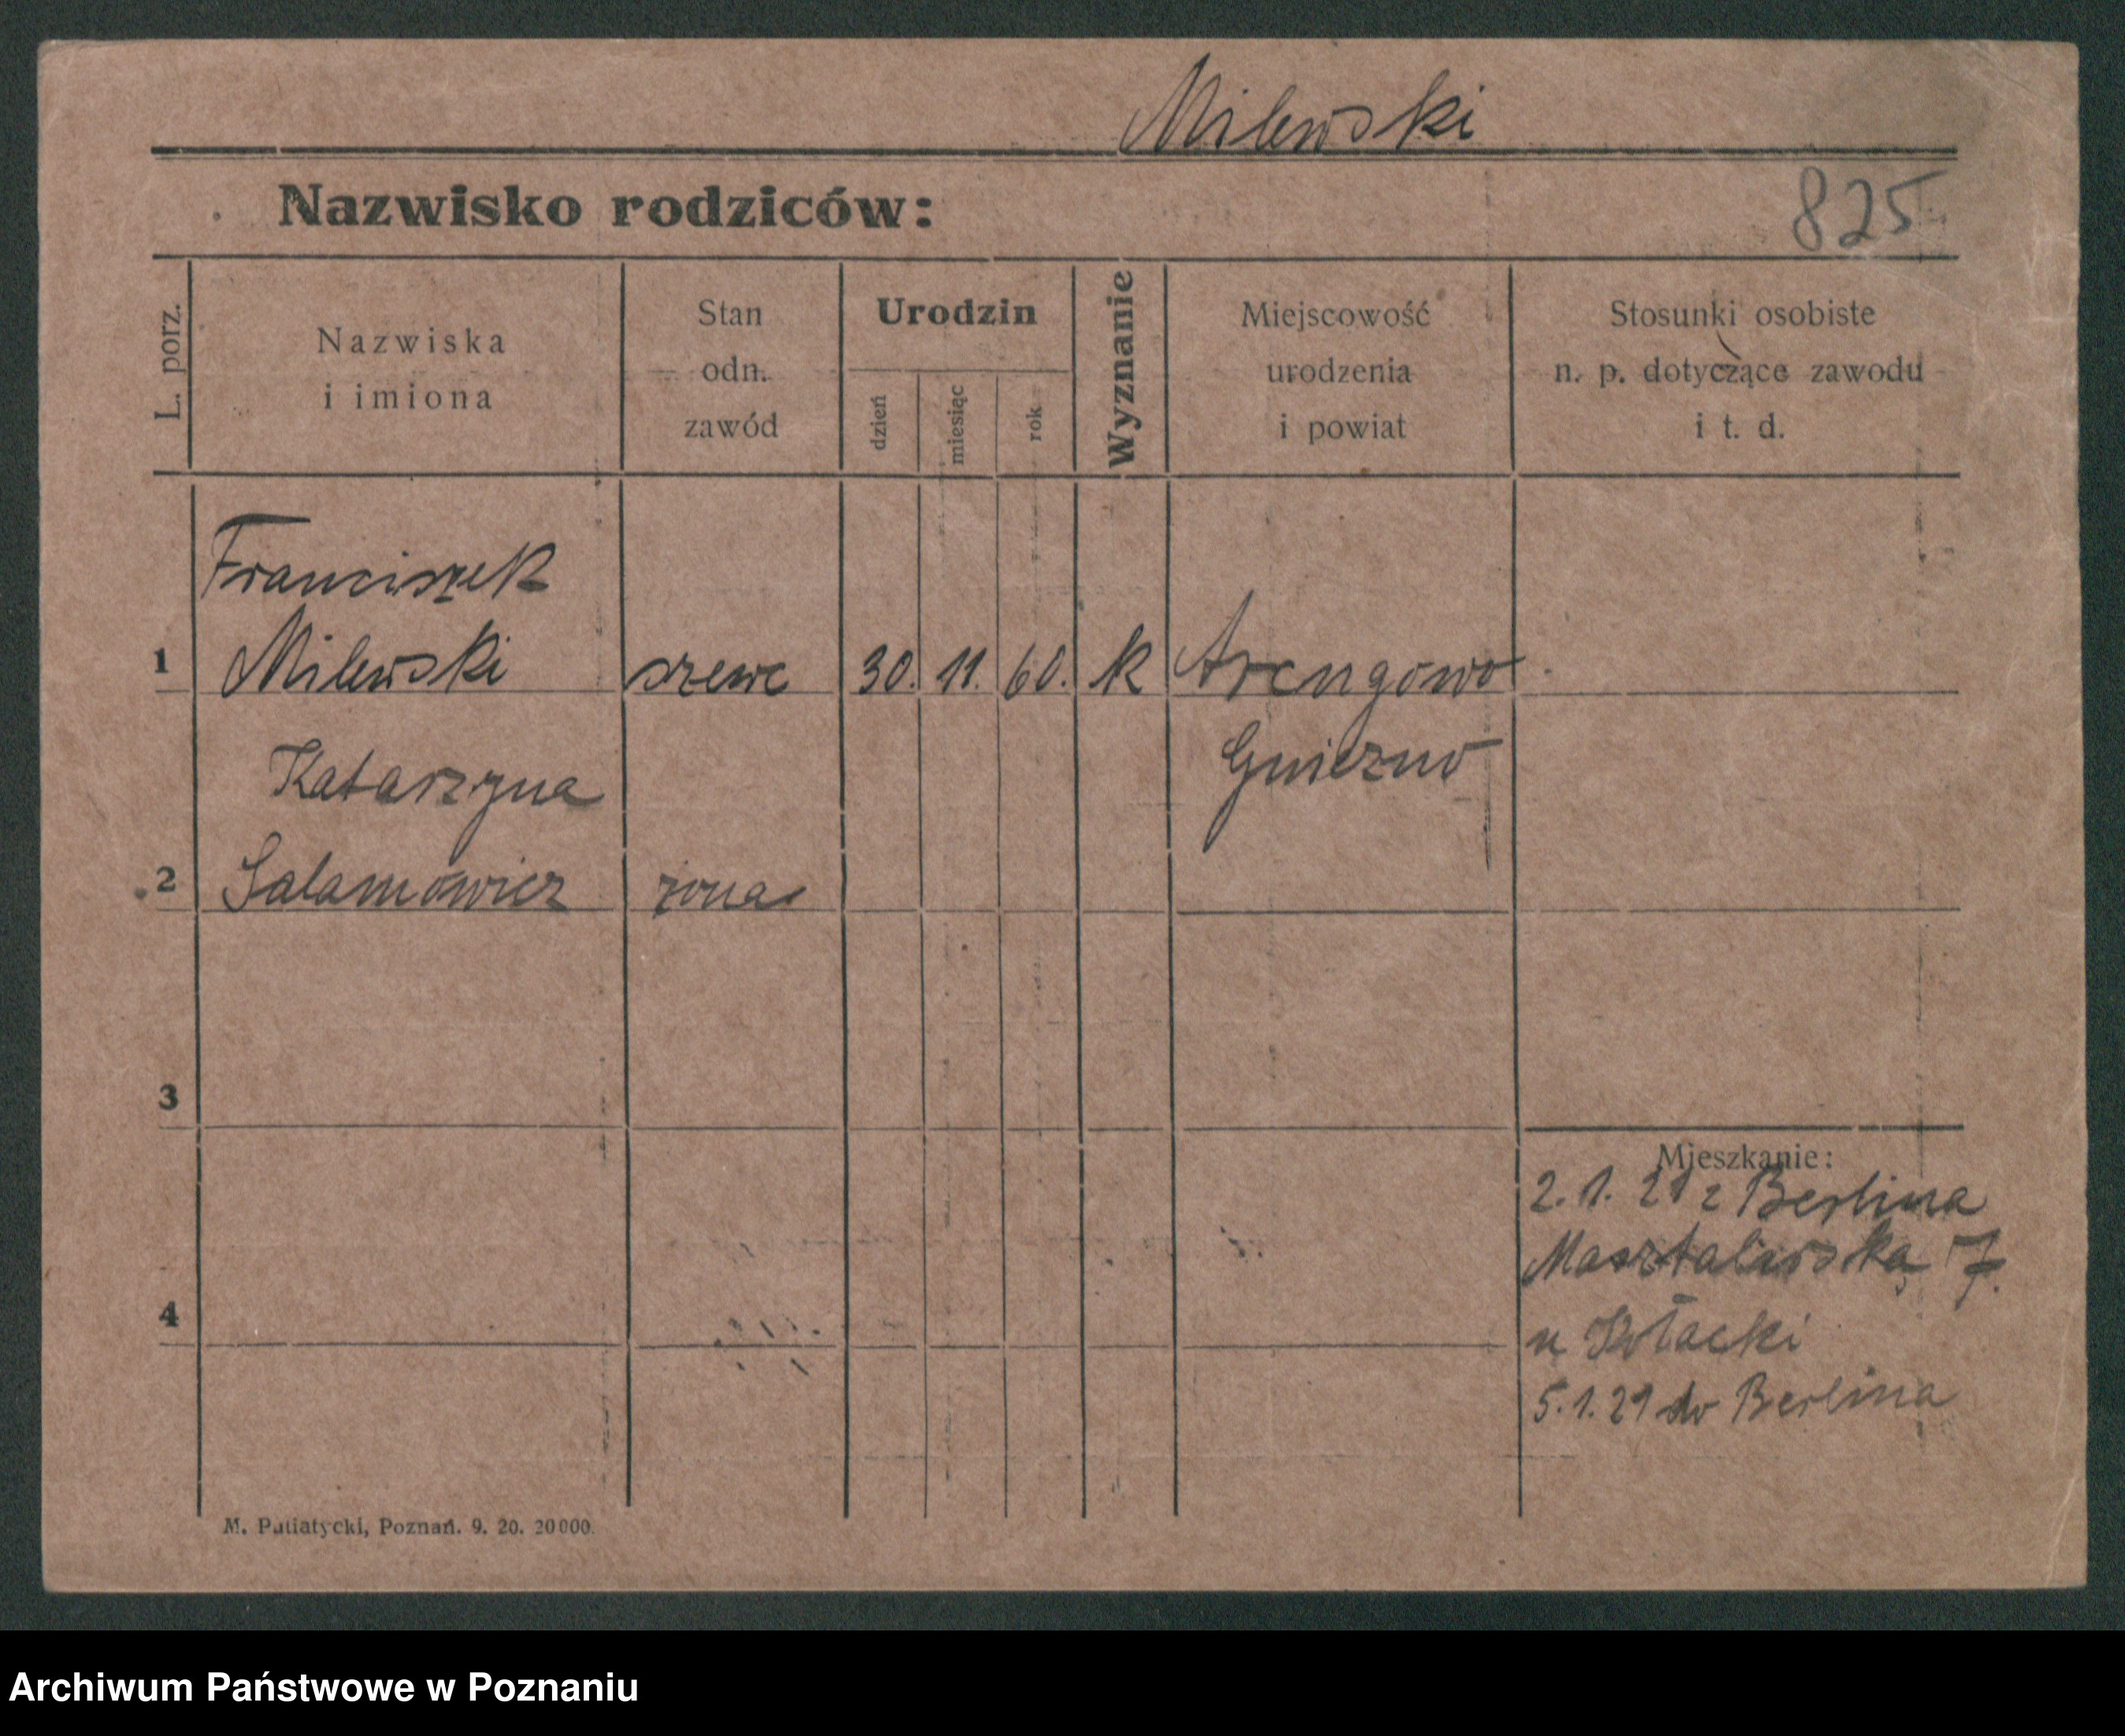 Milewski
Nazwisko rodziców:
825
L. porz.
Nazwiska
i imiona
Stan
odn.
zawód
Urodzin
dzień
miesiąc
rok
Wyznanie
Miejscowość
urodzenia
i powiat
Stosunki osobiste
n. p. dotyczące zawodu
i t. d.
Franciszek
1 Milewski szewc 30. 11. 60. k Arcugowo
Katarzyna Gniezno
2 Salamowicz żona
3
Mieszkanie:
2. 1. 21 z Berlina
Masztalarska 7.
4
u
5. 1. 21 do Berlina
M. Putiatycki, Poznań. 9. 20. 20000.
Archiwum Państwowe w Poznaniu